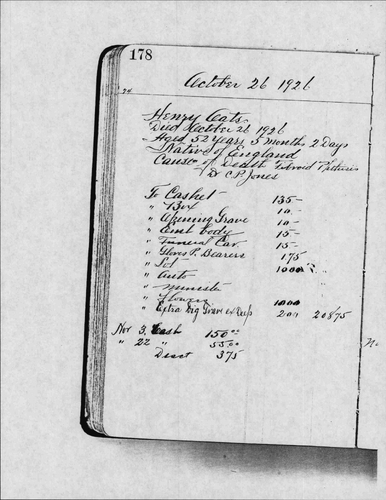 178
October 26 1926
24
Henry Oats
Died October 26 1926
Aged 52 Years 5 months 2 Days
Native of England
Cause of Death Fibroid Phthisis
Dr C. P. Jones
To Casket 135-
" Box 10-
" Opening Grave 10-
" Emb body 15-
" Funeral Car 15-
" Gloves P. Bearers 175
" Lot
" Auto 1000
" Minister
" Flowers 1000
" Extra Dig Grave Deep 200 20875
Nov 3, Cash 150 00
" 22 " 55 00
Disct 375
No